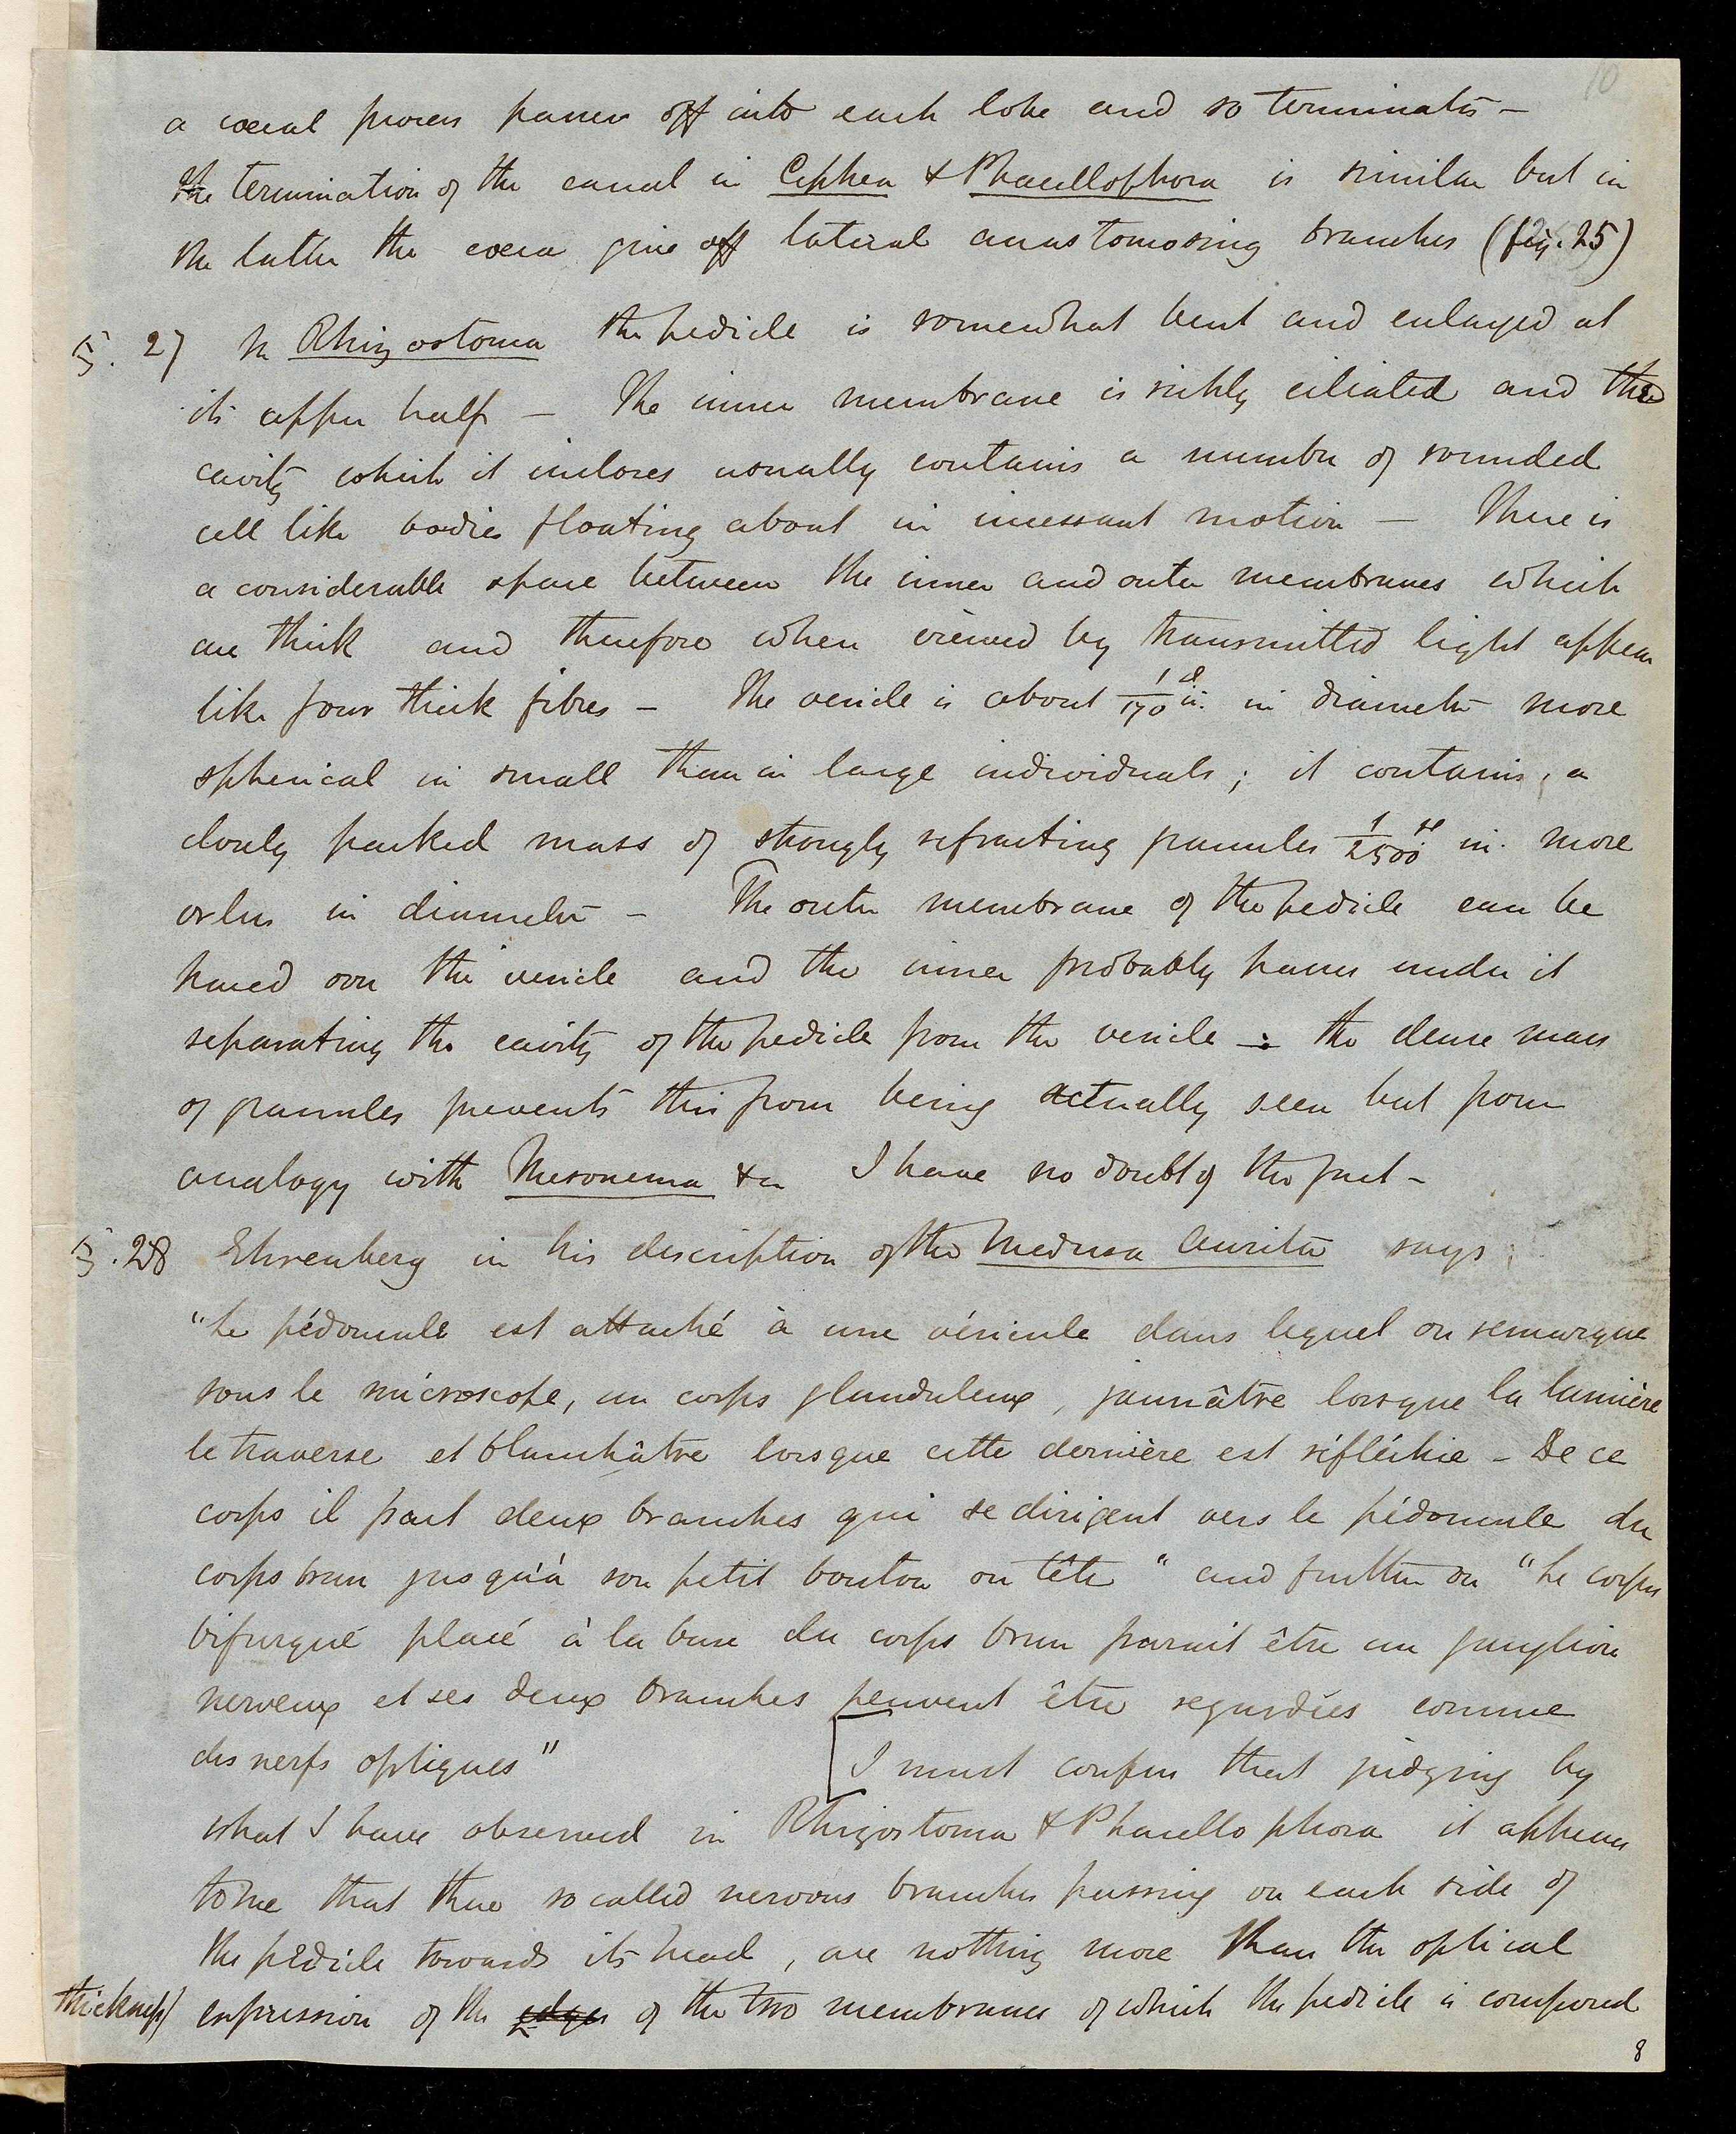 10
a cœcal process passes off into each lobe and so terminates —
the termination of the canal in Cephea & Phacellophora is similar but in
the latter the cœca give off lateral anastomosing branches (fig. 25)
§. 27 In Rhizostoma the pedicle is somewhat bent and enlarged at
its upper half — The inner membrane is richly ciliated and the
cavity which it incloses usually contains a number of rounded
cell like bodies floating about in incessant motion — There is
a considerable space between the inner and outer membranes which
are thick and therefore when viewed by transmitted light appear
like four thick fibres — The vesicle is about 1/170 in. in diameter more
spherical in small than in large individuals; it contains, a
closely packed mass of strongly refracting granules 1/2500 in. more
or less in diameter — The outer membrane of the pedicle can be
traced over the vesicle and the inner probably passes under it
separating the cavity of the pedicle from the vesicle —: the dense mass
of granules prevents this from being actually seen but from
analogy with Mesonema &c I have no doubt of the fact —
§. 28 Ehrenberg in his description of the Medusa Aurita says;
"Le pédoncule est attaché à une vésicule dans lequel on remarque
sous le microscope, un corps glanduleux, jaunâtre lorsque la lumière
le traverse et blanchâtre lorsque cette dernière est réfléchie — De ce
corps il part deux branches qui se dirigent vers le pédoncule du
corps brun jusqu'à son petit bouton ou tête" and further on "Le corps
bifurqué placé à la base du corps brun parait être un ganglion
nerveux et ses deux branches peuvent être regardées comme
des nerfs optiques" [I must confess that judging by
what I have observed in Rhizostoma & Phacellophora it appears
to me that these so called nervous branches passing on each side of
the pedicle towards its head, are nothing more than the optical
thickness/ expression of the edges of the two membranes of which the pedicle is composed
8